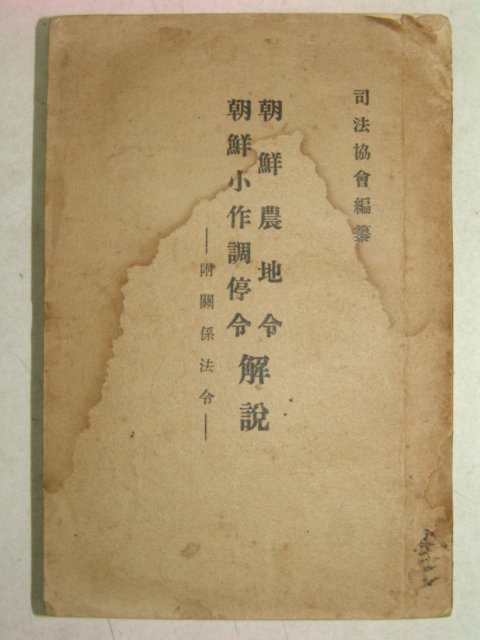 司法協會編纂
朝鮮農地令
朝鮮小作調停令
解説
―附關係法令―